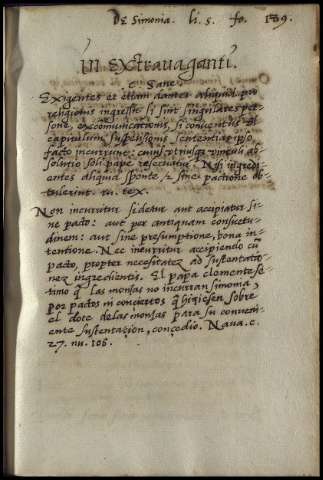 De Simonia. li. 5. fo. 189.
in extravaganti.
c. Sane.
Exigentes et etiam dantes aliquid pro
religionis ingressu si sint singulares per-
sone, excomunicationis, si conventus vel
capitulum, suspensionis sententias ipso
facto incurrunt: cuius utriusque vinculi ab-
solutio soli pape reservatur. Nisi ingredi-
entes aliquid sponte & sine pactione ob-
tulerint. in. tex.
Non incurritur si detur aut accipiatur si-
ne pacto: aut per antiquam consuetu-
dinem: aut sine presumptione, bona in-
tentione. Nec incurritur accipiendo cū
pacto, propter necessitatez ad sustentatio-
nez ingredientis. El papa clemente se-
timo q̄ las monjas no incurran simonia,
por pactos ni conciertos q̄ hiziesen sobre
el dote de las monjas para su conveni-
ente sustentaçion, conçedio. Nava. c.
27. nu. 108.